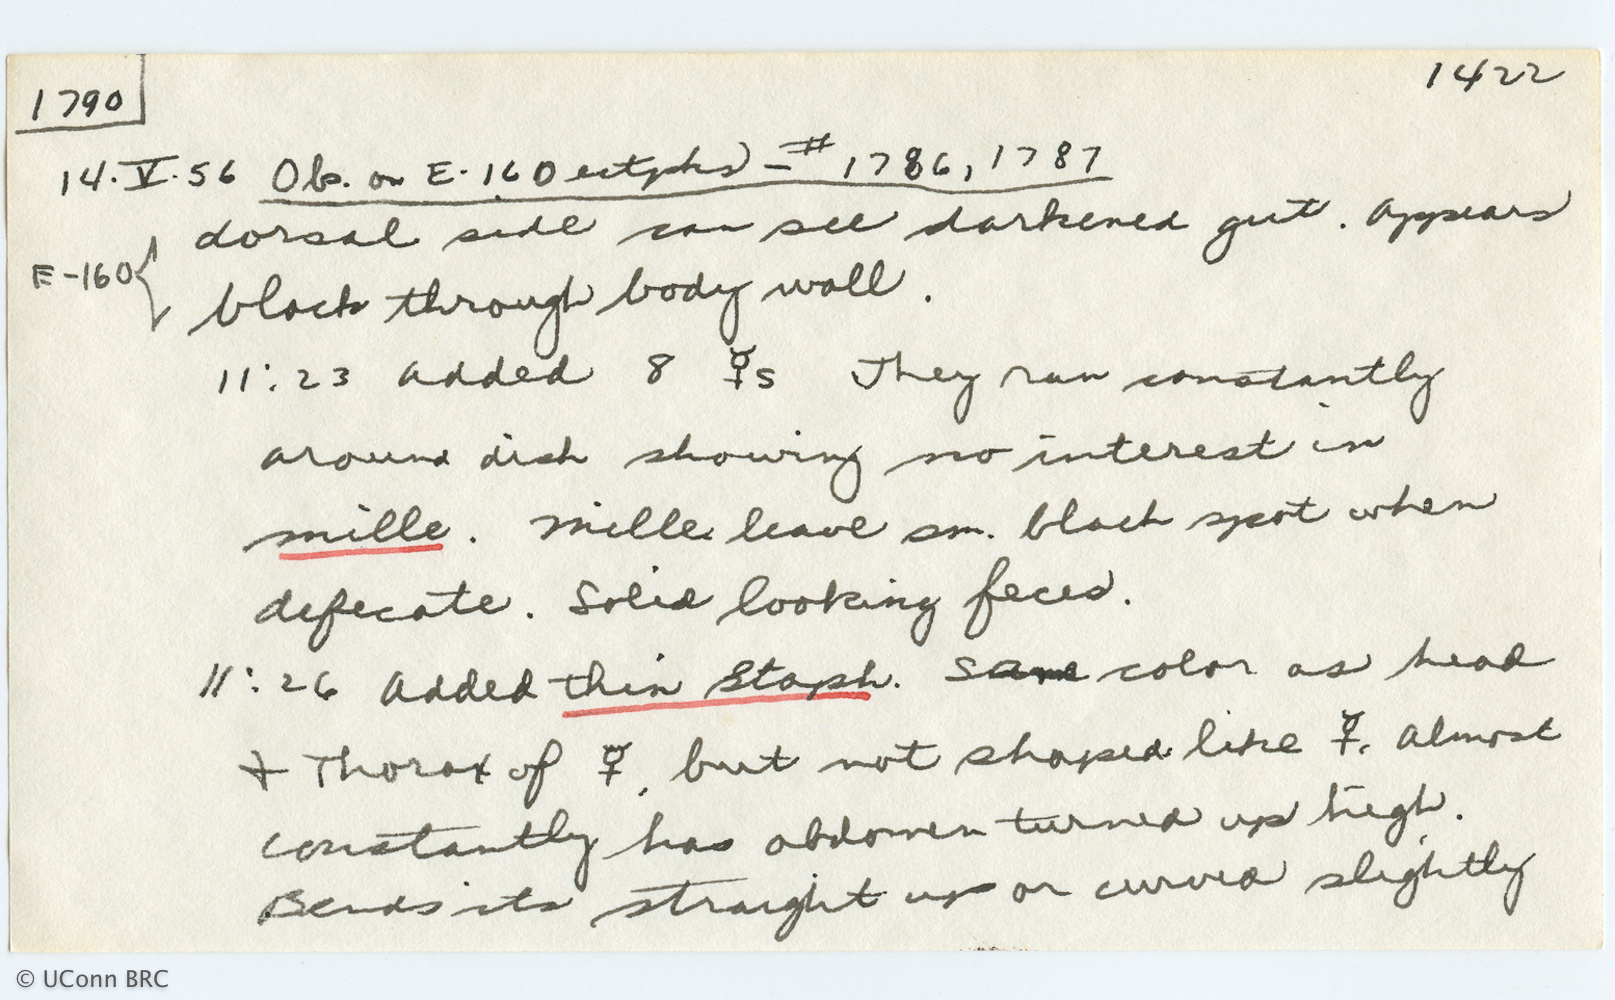 1790
1422
14.V.56 Obs. on E-160 ectyphs - # 1786, 1787
E-160 { dorsal side can see darkened gut. Appears
black through body wall.
11:23 Added 8 ☿s They run constantly
around dish showing no interest in
mille. Mille leave sm. black spot when
defecate. Solid looking feces.
11:26 Added thin Staph. Same color as head
+ Thorax of ☿, but not shaped like ☿. Almost
constantly has abdomen turned up high.
Bends its straight up or curved slightly
© UConn BRC